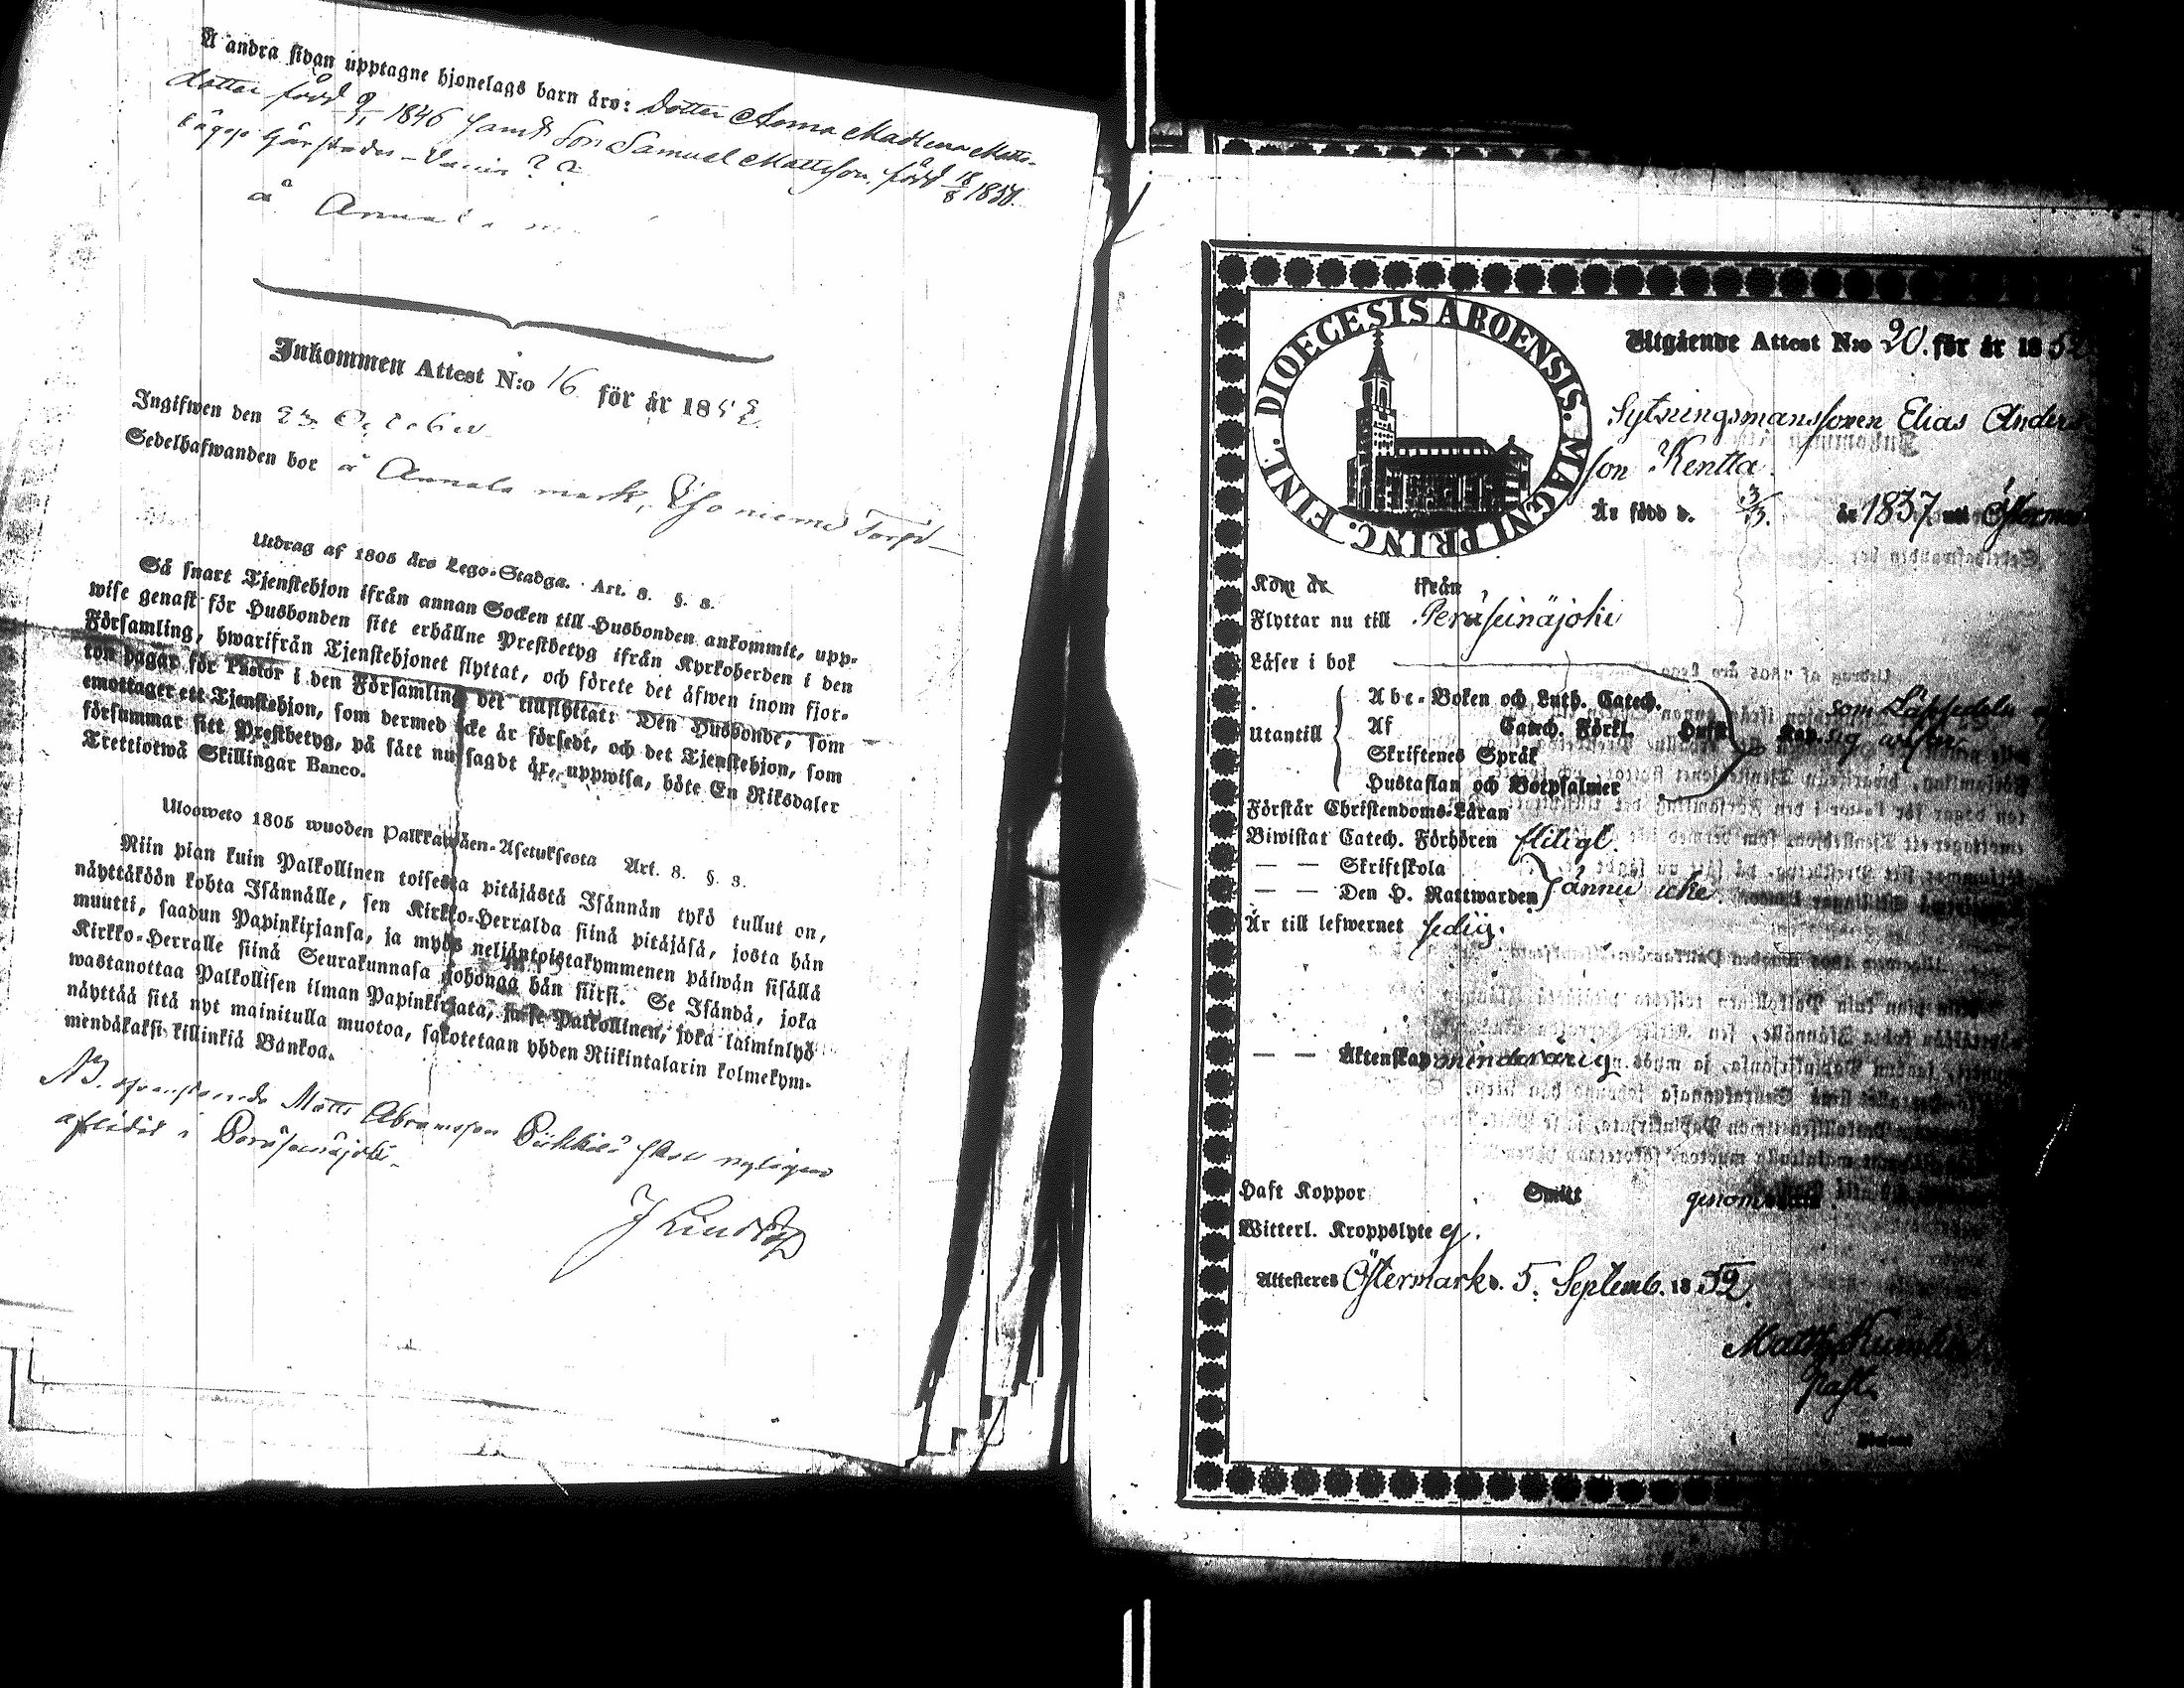 Å andra sidan upptagne hjonelags barn äro: Dotter Anna Madlena Matts-
dotter född 9/11 1846 samt Son Samuel Mattsson, född 18/8
å Annala
Inkommen Attest N:o 16 för år 1852
Ingifwen den 23 October
Sedelhafwanden bor å Annala mark,
Utdrag af 1805 års Lego-Stadga. Art. 3. §. 3.
Så snart Tjenstehjon ifrån annan Socken till Husbonden ankommit, upp-
wise genast för Husbonden sitt erhållne Prestbetyg ifrån Kyrkoherden i den
Församling, hwarifrån Tjenstehjonet flyttat, och förete det äfwen inom fjor-
ton dagar för Pastor i den Församling det tillflyttat: Den Husbonde, som
emottager ett Tjenstehjon, som dermed icke är försedt, och det Tjenstehjon, som
försummar sitt Prestbetyg, på sätt nu sagdt är, uppwisa, böte En Riksdaler
Trettiotwå Skillingar Banco.
Ulosweto 1805 wuoden Palkkawäen-Asetuksesta Art. 3. §. 3.
Niin pian kuin Palkollinen toisesta pitäjästä Isännän tykö tullut on,
näyttäköön kohta Isännälle, sen Kirkko-Herralda siinä pitäjäsä, josta hän
muutti, saadun Papinkirjansa, ja myös neljäntoistakymmenen päiwän sisällä
Kirkko-Herralle siinä Seurakunnasa johonga hän siirsi. Se Isändä, joka
wastanottaa Palkollisen ilman Papinkirjata, ja se Palkollinen, joka laiminlyö
näyttää sitä nyt mainitulla muotoa, sakotetaan yhden Riikintalarin kolmekym-
mendäkaksi killinkiä Bankoa.
NB. ofvanstående Matts Abramsson Pukkila skall nyligen
aflidit i Peräseinäjoki.
DIOECESIS ABOENSIS. MAGNI PRINC. FINL.
Utgående Attest N:o 20. för år 1852
Sytningsmanssonen Elias Anders
son Kentta.
Är född d. 3/3. år 1837 uti Österma
Kom år ifrån
Flyttar nu till Peräseinäjoki
Läser i bok
Utantill
Abc-Boken och Luth. Catech.
Af Catech. Förkl. Hust. Kap.
Skriftenes Språk
Hustaflan och Botpsalmer
som Läpsedeln
sig
Förstår Christendoms-Läran
Biwistat Catech. Förhören flitigt.
— — Skriftskola
— — Den H. Nattwarden ännu icke.
Är till lefwernet sedig.
— — Äktenskap minderårig
Haft Koppor Smitt genom
Witterl. Kroppslyte ej.
Attesteres Östermark d. 5. Septemb. 1852.
Matth
Past.